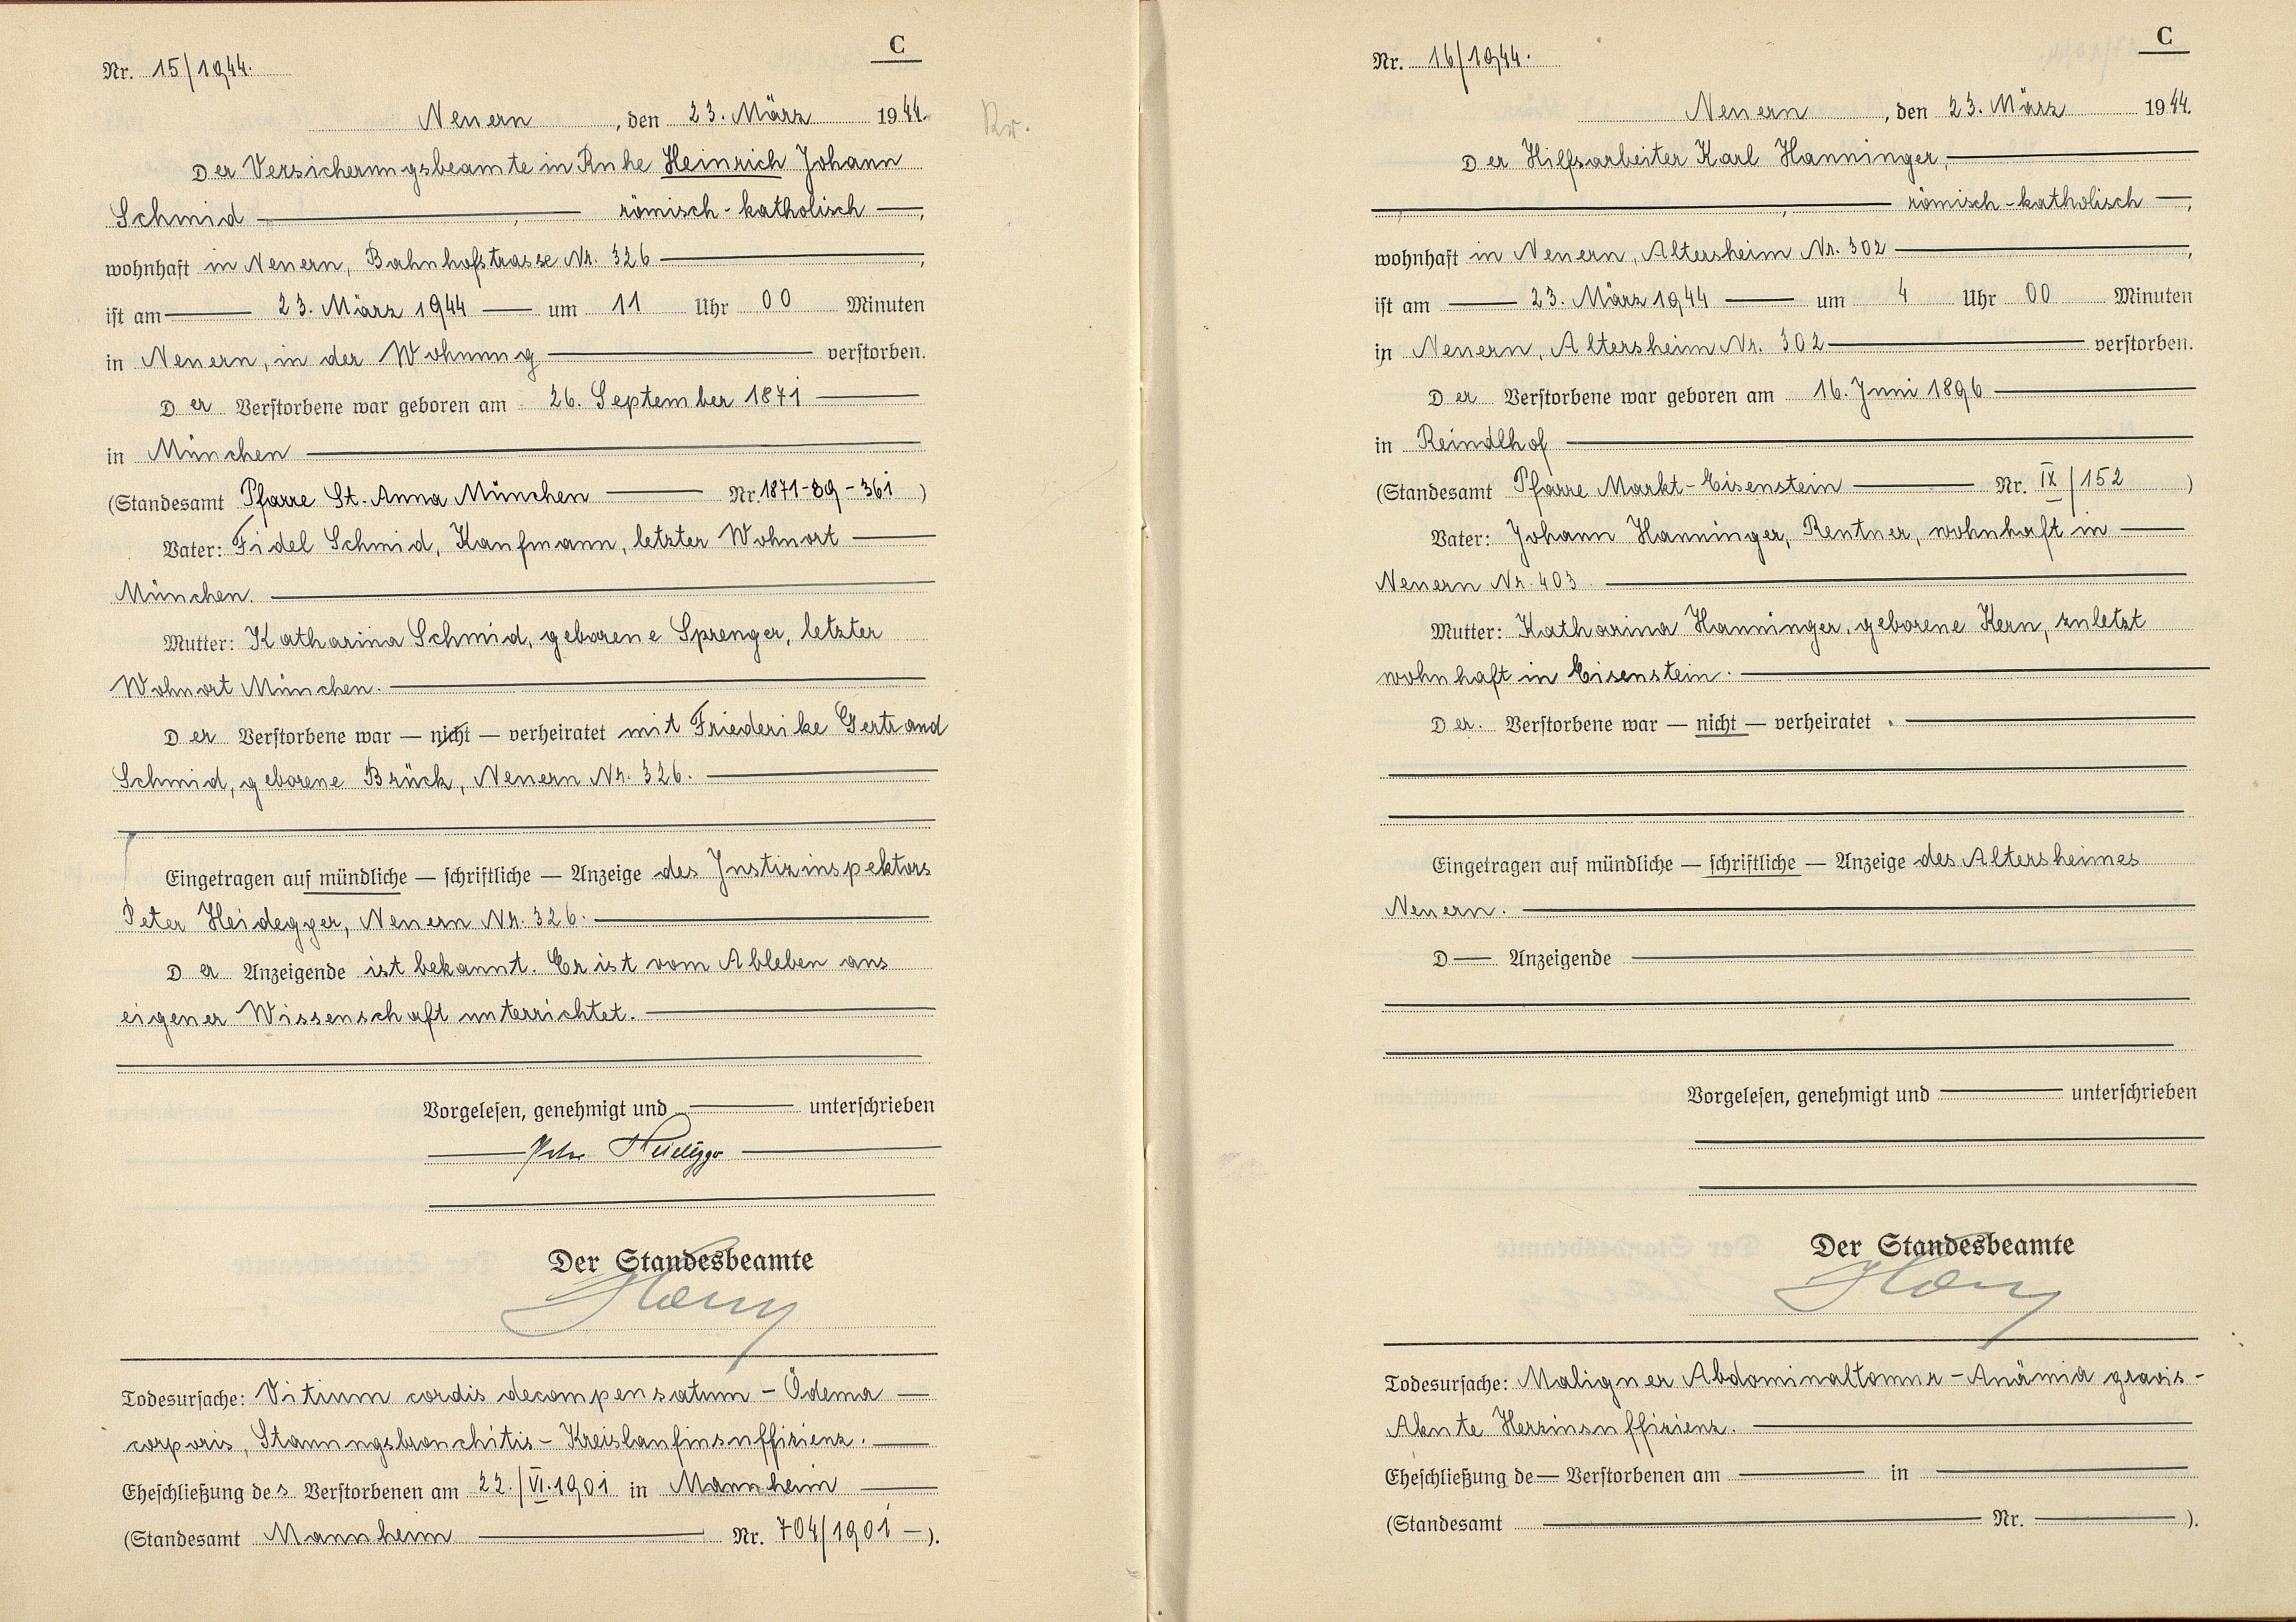 C
Nr. 15/1944.
Neuern, den 23. März 1944.
Der Versicherungsbeamte in Ruhe Heinrich Johann
Schmid römisch-katholisch,
wohnhaft in Neuern, Bahnhofstrasse Nr. 326,
ist am 23. März 1944 um 11 Uhr 00 Minuten
in Neuern, in der Wohnung verstorben.
Der Verstorbene war geboren am 26. September 1871
in München
(Standesamt Pfarre St. Anna München Nr. 1871-89-361)
Vater: Fidel Schmid, Kaufmann, letzter Wohnort
München.
Mutter: Katharina Schmid, geborene Sprenger, letzter
Wohnort München.
Der Verstorbene war — nicht — verheiratet mit Friederike Gertraud
Schmid, geborene Brück, Neuern Nr. 326.
Eingetragen auf mündliche — schriftliche — Anzeige des Justizinspektors
Peter Heidegger, Neuern Nr. 326.
Der Anzeigende ist bekannt. Er ist vom Ableben aus
eigener Wissenschaft unterrichtet.
Vorgelesen, genehmigt und unterschrieben
Peter Heidegger
Der Standesbeamte
Todesursache: Vitium cordis decompensatum - Ödema
corporis, Stauungsbronchitis - Kreislaufinsuffizienz.
Eheschließung des Verstorbenen am 22./VI.1901 in Mannheim
(Standesamt Mannheim Nr. 704/1901 —).
C
Nr. 16/1944.
Neuern, den 23. März 1944.
Der Hilfsarbeiter Karl Hanninger,
römisch-katholisch,
wohnhaft in Neuern, Altersheim Nr. 302,
ist am 23. März 1944 um 4 Uhr 00 Minuten
in Neuern, Altersheim Nr. 302 verstorben.
Der Verstorbene war geboren am 16. Juni 1896
in Reindlhof
(Standesamt Pfarre Markt-Eisenstein Nr. IX/152)
Vater: Johann Hanninger, Rentner, wohnhaft in
Neuern Nr. 403.
Mutter: Katharina Hanninger, geborene Kern, zuletzt
wohnhaft in Eisenstein.
Der. Verstorbene war — nicht — verheiratet.
Eingetragen auf mündliche — schriftliche — Anzeige des Altersheimes
Neuern.
D— Anzeigende
Vorgelesen, genehmigt und unterschrieben
Der Standesbeamte
Todesursache: Maligner Abdominaltomur - Anämia gravis -
Akute Herzinsuffizienz.
Eheschließung de— Verstorbenen am — in —
(Standesamt — Nr. —).